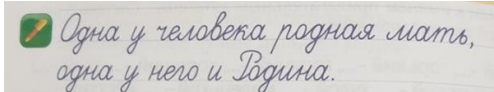 Одна у человека родная мать,
одна у него и Родина.